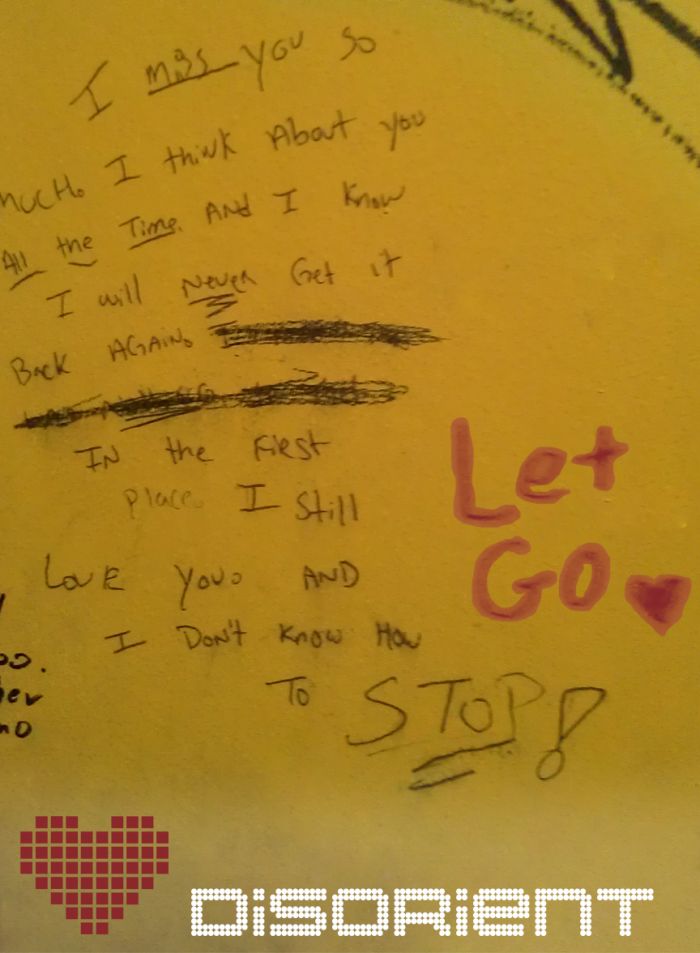 I miss you so
much. I think About you
All the Time. And I know
I will Never Get it
Back AGAIN.
IN the First
place. I still
Love you. AND
I Don't know How
To STOP!
Let
GO
DISORIENT